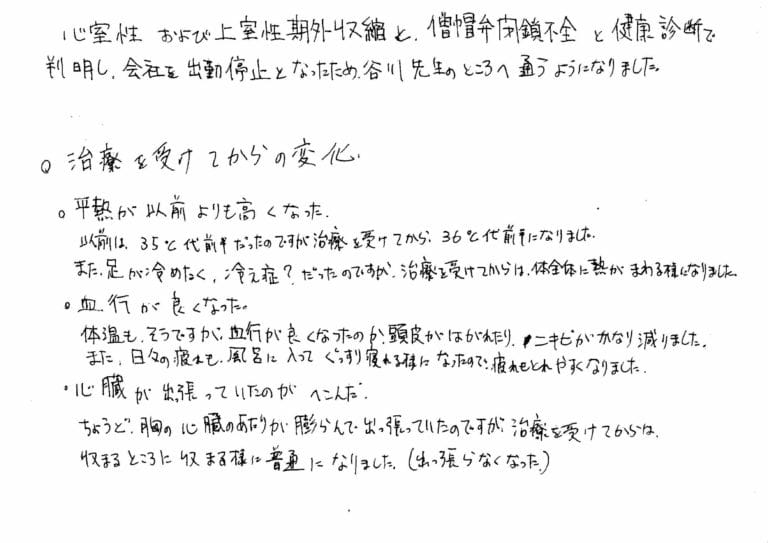 心室性 および上室性期外収縮と、僧帽弁閉鎖不全 と健康診断で
判明し、会社を出勤停止となったため、谷川先生のところへ通うようになりました。
○ 治療を受けてからの変化。
○ 平熱が以前よりも高くなった。
以前は、35℃代前半だったのですが治療を受けてから、36℃代前半になりました。
また、足が冷めたく、冷え症?だったのですが、治療を受けてからは、体全体に熱がまわる様になりました。
・血行が良くなった。
体温も、そうですが、血行が良くなったのか、頭皮がはがれたり、ニキビがかなり減りました。
また、日々の疲れも、風呂に入ってぐっすり寝れる様になったので、疲れもとれやすくなりました。
・心臓が出張っていたのがへこんだ。
ちょうど、胸の心臓のあたりが膨らんで出っ張っていたのですが、治療を受けてからは、
収まるところに収まる様に普通になりました。(出っ張らなくなった。)